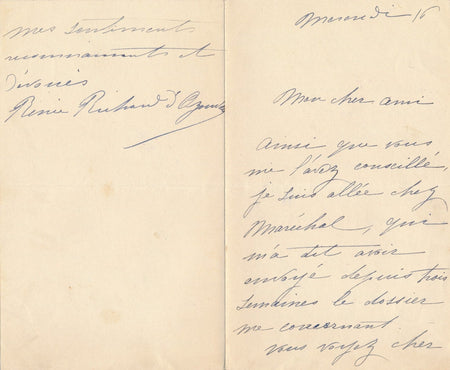 Mercredi 16
Mon cher ami
Ainsi que vous
me l'avez conseillé,
je suis allée chez
Maréchal, qui
m'a dit avoir
envoyé depuis trois
semaines le dossier
me concernant
vous voyez cher
mes sentiments
reconnaissants et
dévoués
Renée Richard